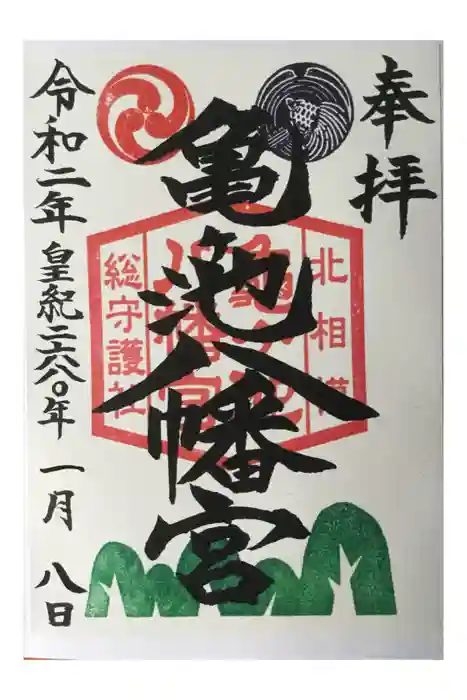 奉拝
北相模
亀ヶ池
八幡宮
総守護社
亀池八幡宮
令和二年皇紀二六八〇年一月八日